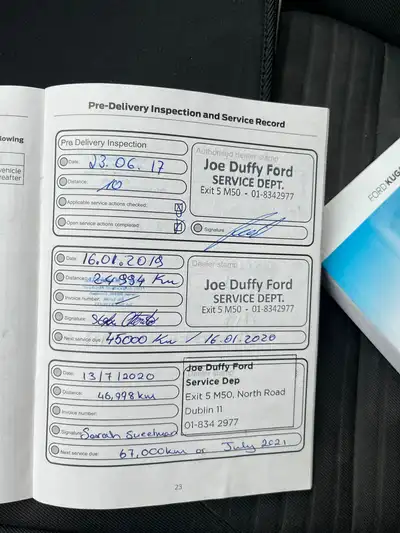 lowing
vehicle
eafter
Pre-Delivery Inspection and Service Record
Pre Delivery Inspection
Date: 23.06.17
Distance: 10
Applicable service actions checked:
Open service actions completed:
Authorising dealer stamp
Joe Duffy Ford
SERVICE DEPT.
Exit 5 M50 - 01-8342977
Signature
Date: 16.01.2019
Distance: 24994 Km
Invoice number:
Signature:
Next service due: 45000 Km / 16.01.2020
Dealer stamp
Joe Duffy Ford
SERVICE DEPT.
Exit 5 M50 - 01-8342977
Date: 13/7/2020
Distance: 46,998km
Invoice number:
Signature: Sarah
Next service due: 67,000km or July 2021
Joe Duffy Ford
Service Dep
Exit 5 M50, North Road
Dublin 11
01-834 2977
23
FORD KUG